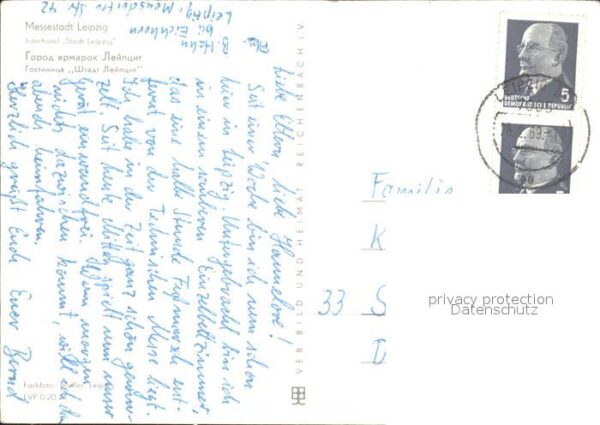 Messestadt Leipzig
Interhotel „Stadt Leipzig"
Город ярмарок Лейпциг
Гостиница „Штадт Лейпциг"
Hahn
bei Eichhorn
Leipzig,
Str. 42
Liebe Eltern, liebe Hannelore!
Seit einer Woche bin ich nun schon
hier in Leipzig. Untergebracht bin ich
in einem sauberen Einzelbettzimmer,
das eine halbe Stunde Fußmarsch ent-
fernt von der Technischen Messe liegt.
Ich habe in der Zeit ganz schön
Seit heute Mittag spielt nun unser
Gerät einwandfrei. Wenn morgen
nichts dazwischen kommt, will ich
abends heimfahren.
Herzlich grüßt Euch Euer Bernd
VEB BILD UND HEIMAT REICHENBACH i. V.
Farbfoto: Leipzig
EVP 0.20
Familie
K
33 S
D
DEUTSCHE
DEMOKRATISCHE REPUBLIK
5
69
privacy protection
Datenschutz